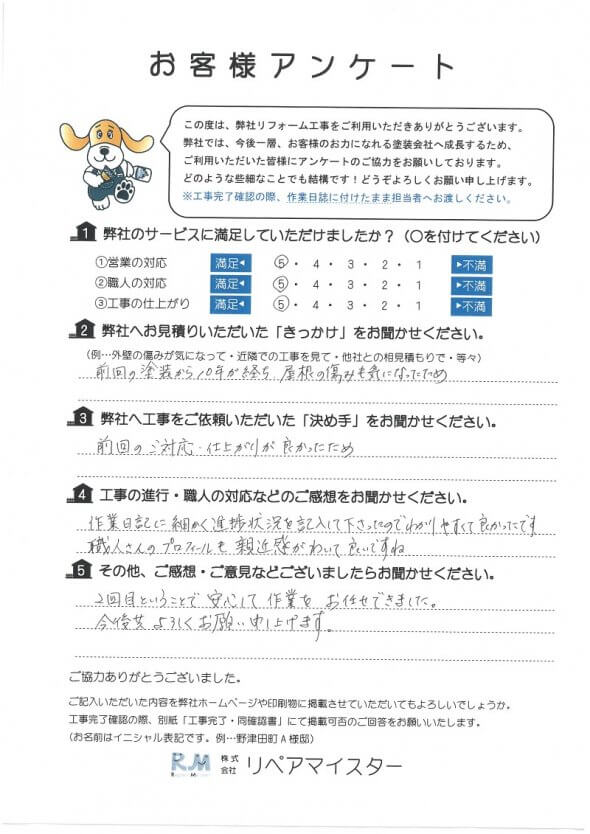 お客様アンケート
この度は、弊社リフォーム工事をご利用いただきありがとうございます。
弊社では、今後一層、お客様のお力になれる塗装会社へ成長するため、
ご利用いただいた皆様にアンケートのご協力をお願いしております。
どのような些細なことでも結構です！どうぞよろしくお願い申し上げます。
※工事完了確認の際、作業日誌に付けたまま担当者へお渡しください。
1 弊社のサービスに満足していただけましたか？（〇を付けてください）
①営業の対応 満足◀ ⑤・4・3・2・1 ▶不満
②職人の対応 満足◀ ⑤・4・3・2・1 ▶不満
③工事の仕上がり 満足◀ ⑤・4・3・2・1 ▶不満
2 弊社へお見積りいただいた「きっかけ」をお聞かせください。
（例…外壁の傷みが気になって・近隣での工事を見て・他社との相見積もりで・等々）
前回の塗装から10年が経ち、屋根の傷みも気になったため
3 弊社へ工事をご依頼いただいた「決め手」をお聞かせください。
前回のご対応・仕上がりが良かったため
4 工事の進行・職人の対応などのご感想をお聞かせください。
作業日記に細かく進捗状況を記入して下さったのでわかりやすくて良かったです
職人さんのプロフィールも親近感がわいて良いですね
5 その他、ご感想・ご意見などございましたらお聞かせください。
2回目ということで安心して作業をお任せできました。
今後共よろしくお願い申し上げます。
ご協力ありがとうございました。
ご記入いただいた内容を弊社ホームページや印刷物に掲載させていただいてもよろしいでしょうか。
工事完了確認の際、別紙「工事完了・同確認書」にて掲載可否のご回答をお願いいたします。
（お名前はイニシャル表記です。例…野津田町A様邸）
RM 株式会社 リペアマイスター